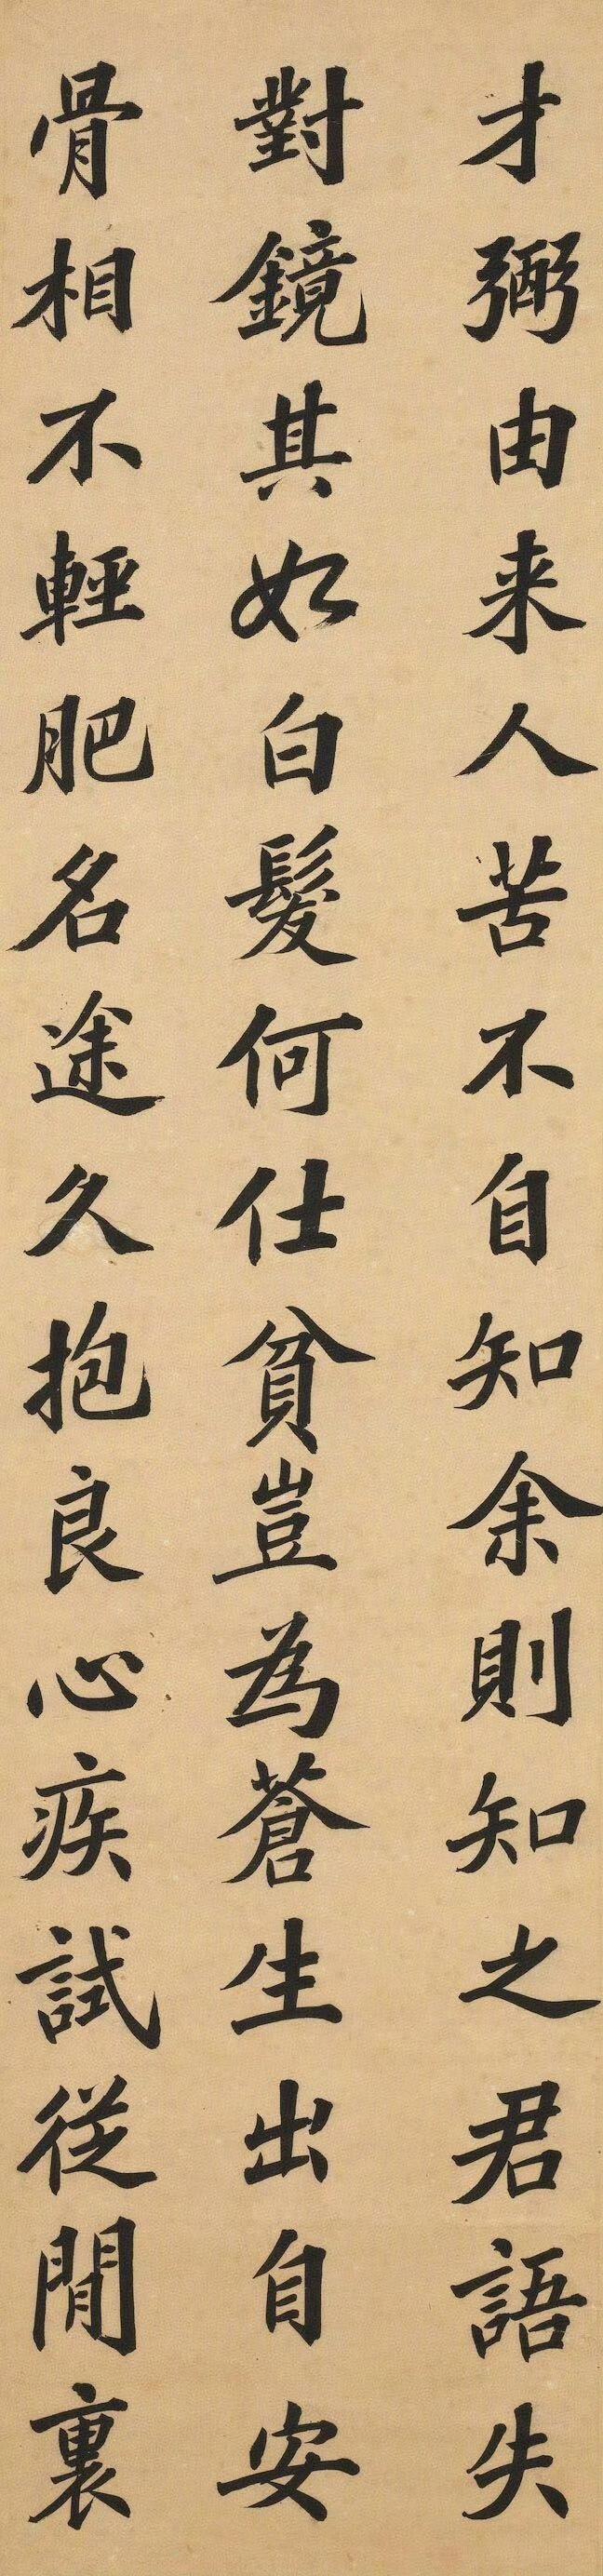 才弼由来人苦不自知余則知之君語失
對鏡其如白髮何仕貧豈為蒼生出自安
骨相不輕肥名途久抱良心疾試従閒裏